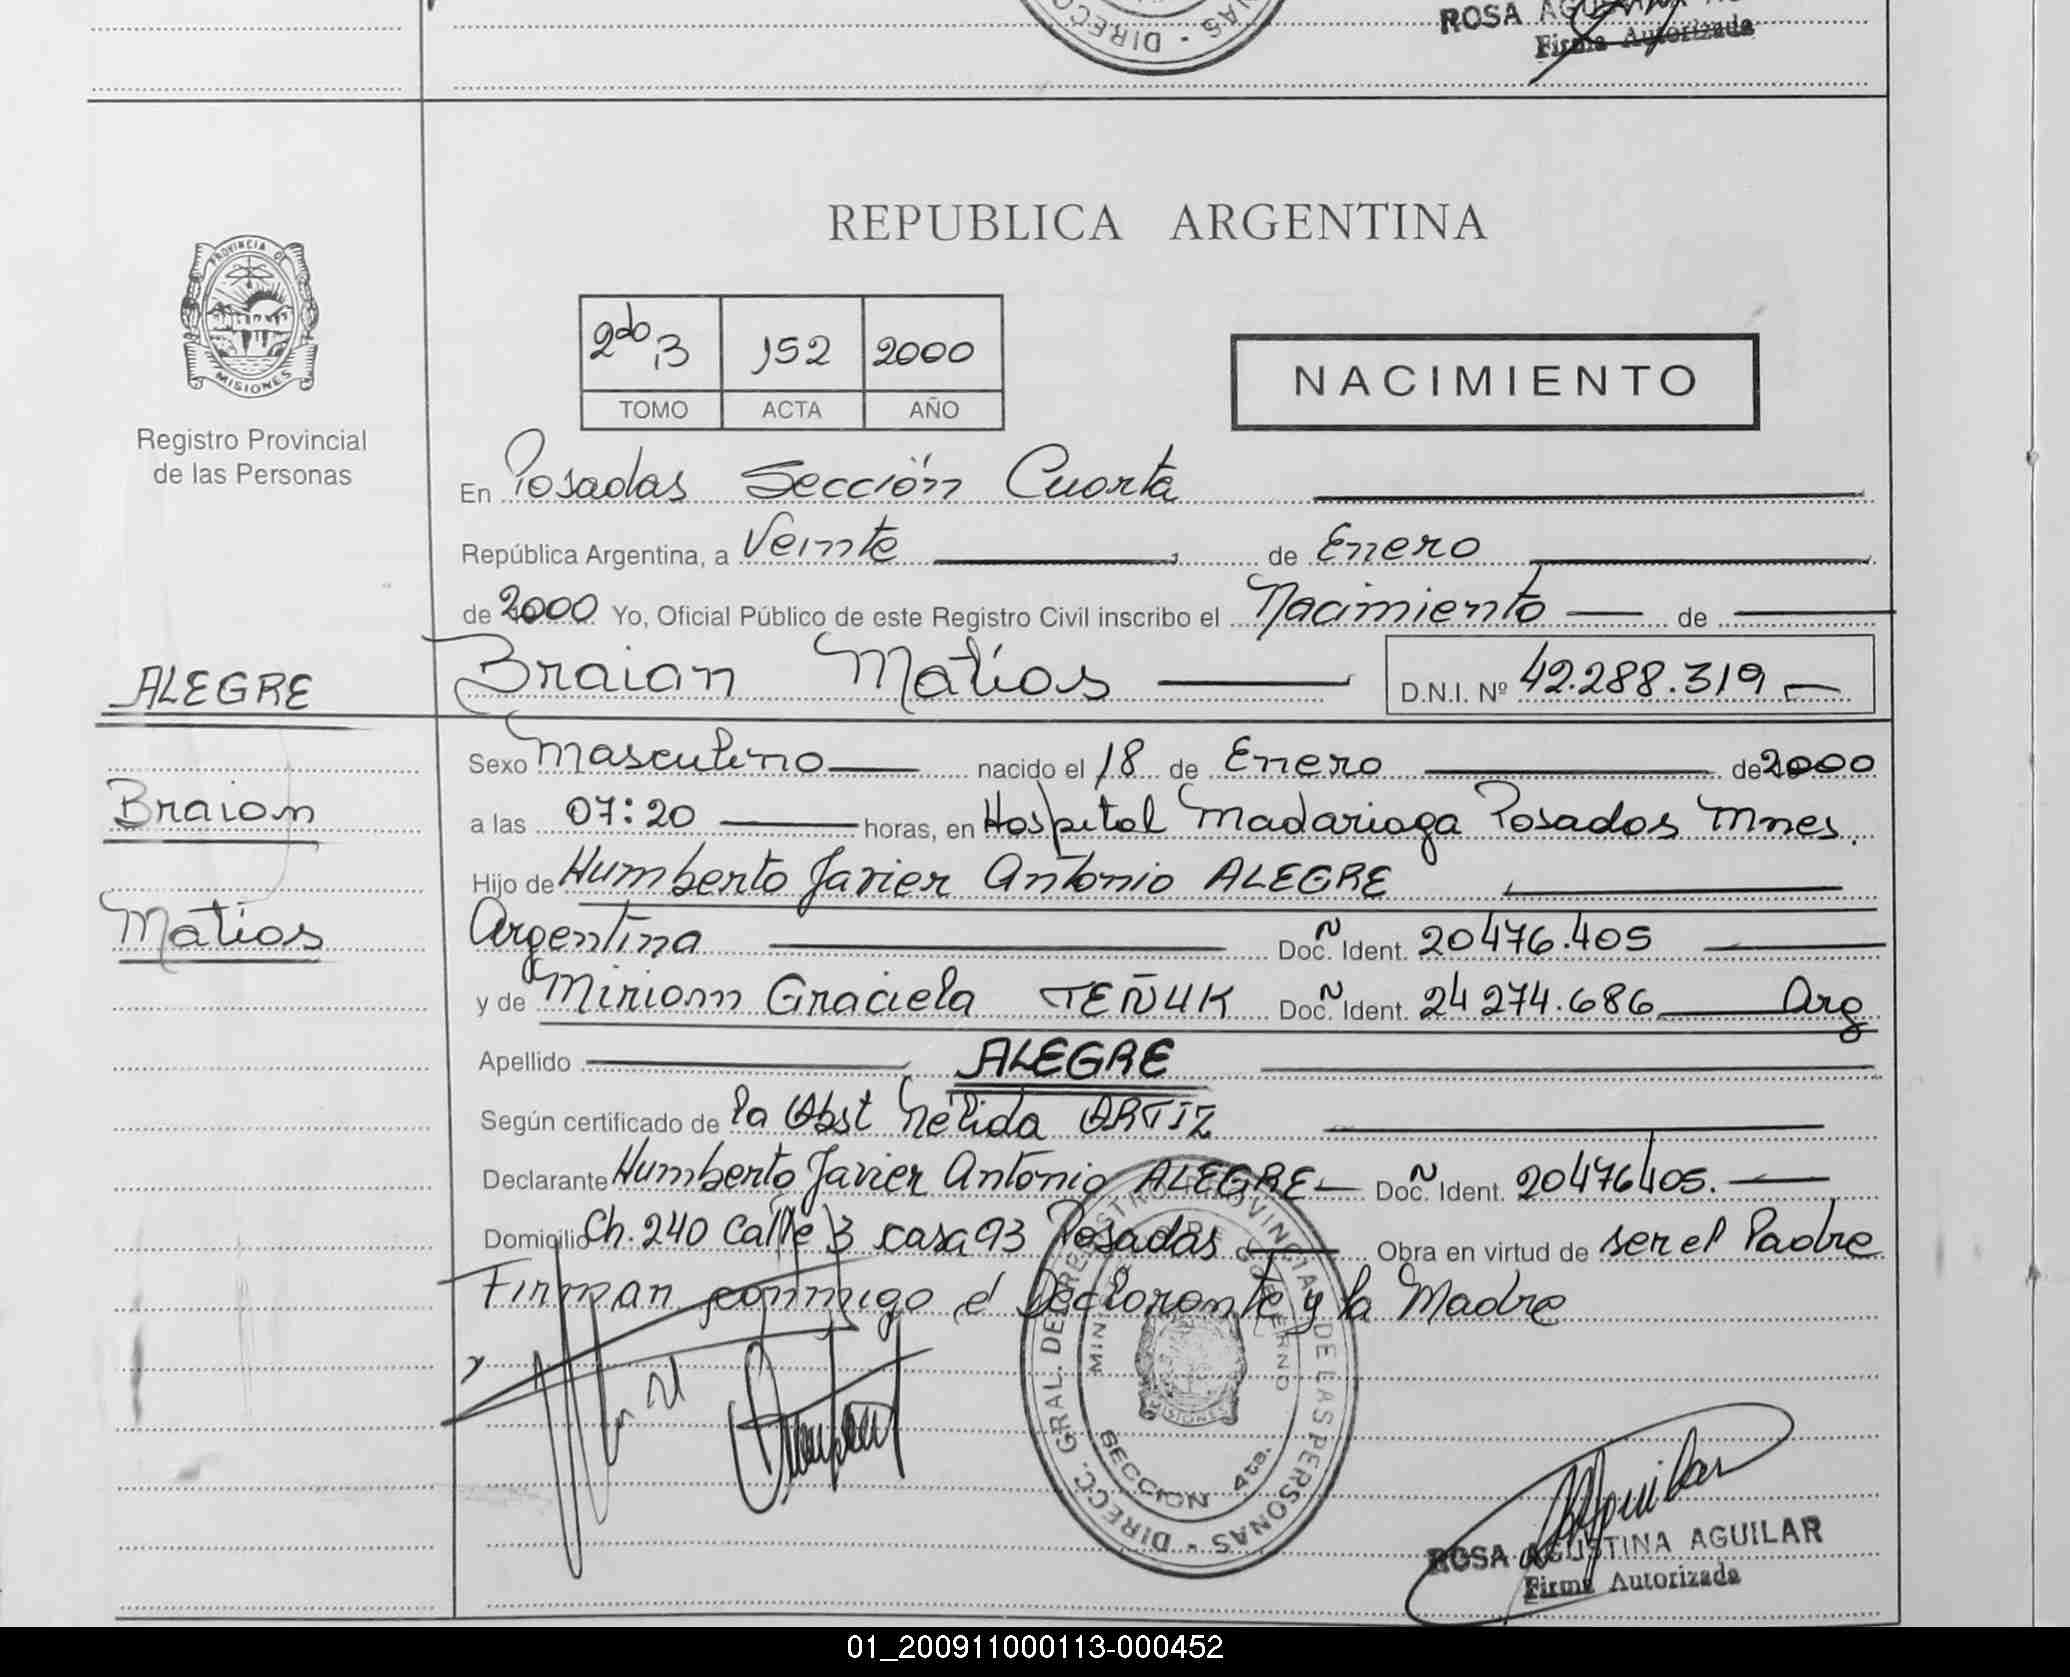 DIRECC
NAS
ROSA AGUSTINA
Firma Autorizada
REPUBLICA ARGENTINA
PROVINCIA DE
MISIONES
Registro Provincial
de las Personas
2do 13 152 2000
TOMO ACTA AÑO
NACIMIENTO
En Posadas Sección Cuarta
República Argentina, a Veinte de Enero
de 2000 Yo, Oficial Público de este Registro Civil inscribo el Nacimiento de
ALEGRE
Braian Matías D.N.I. Nº 42.288.319
Sexo Masculino nacido el 18 de Enero de 2000
Braian
a las 07:20 horas, en Hospital Madariaga Posadas Mnes.
Hijo de Humberto Javier Antonio ALEGRE
Matías
Argentina Doc. Ident. 20476.405
y de Miriam Graciela TEÑUK Doc. Ident. 24274.686 Arg
Apellido ALEGRE
Según certificado de la Obst Nélida ORTIZ
Declarante Humberto Javier Antonio ALEGRE Doc. Ident. 20476405.
Domicilio Ch. 240 Calle 3 casa 93 Posadas Obra en virtud de ser el Padre
Firman conmigo el Declarante y la Madre
DIRECC. GRAL. DEL REGISTRO PROVINCIAL DE LAS PERSONAS
MINISTERIO DE GOBIERNO
MISIONES
SECCION 4ta.
Aguilar
ROSA AGUSTINA AGUILAR
Firma Autorizada
01_200911000113-000452